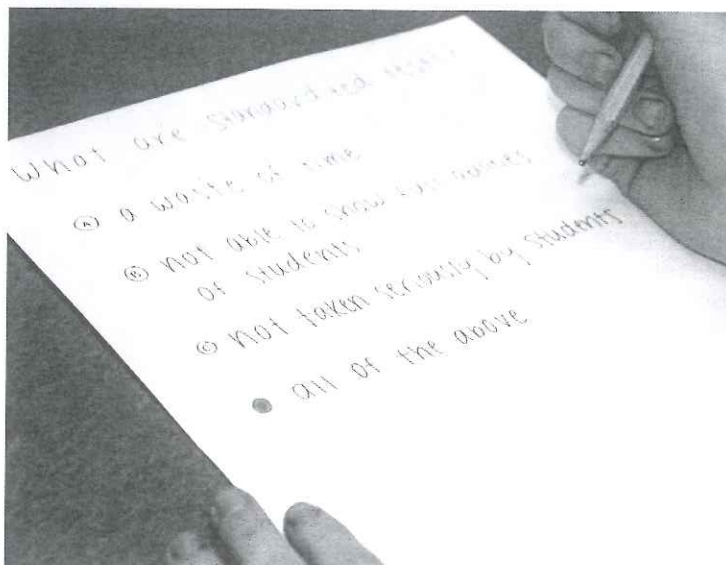 What are standardized tests?
Ⓐ a waste of time
Ⓑ not able to show full abilities
of students
Ⓒ not taken seriously by students
● all of the above